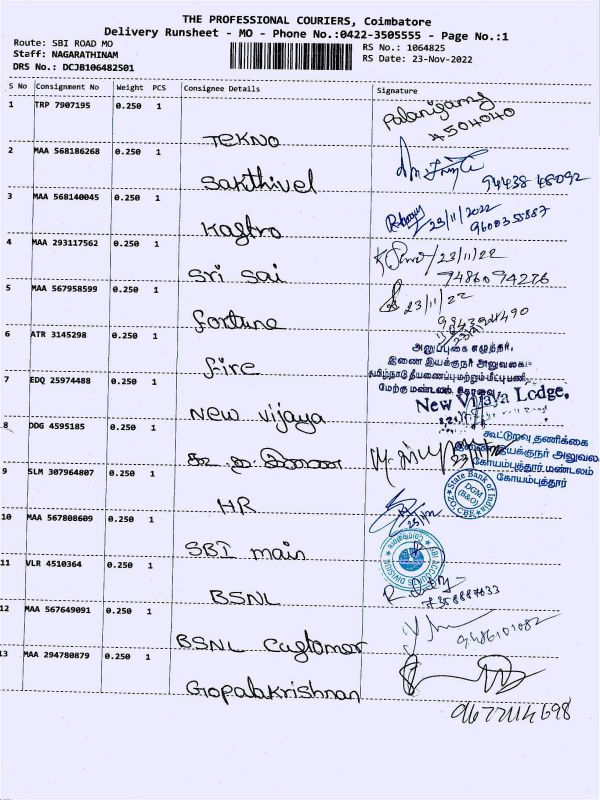 THE PROFESSIONAL COURIERS, Coimbatore
Delivery Runsheet - MO - Phone No.:0422-3505555 - Page No.:1
Route: SBI ROAD MO
RS No.: 1064825
Staff: NAGARATHINAM
RS Date: 23-Nov-2022
DRS No.: DCJB106482501
S No Consignment No Weight PCS Consignee Details Signature
1 TRP 7907195 0.250 1 TEKNO Palanigamy
4504040
2 MAA 568186268 0.250 1 Sakthivel 94438 48092
3 MAA 568140045 0.250 1 Kastro 23/11/2022
9600355887
4 MAA 293117562 0.250 1 Sri Sai 23/11/22
9486094276
5 MAA 567958599 0.250 1 fortune 23/11/22
6 ATR 3145298 0.250 1 fire
அனுப்புகை எழுத்தர்,
இணை இயக்குநர் அலுவலக
தமிழ்நாடு தீயணைப்பு மற்றும் மீட்பு பணி
மேற்கு மண்டலம்
7 EDQ 25974488 0.250 1 New Vijaya New Vijaya Lodge.
8 DDG 4595185 0.250 1
கூட்டுறவு தணிக்கை
இணை இயக்குநர் அலுவல
கோயம்புத்தூர் மண்டலம்
கோயம்புத்தூர்
9 SLM 307964807 0.250 1 HR
State Bank of India
DGM
(B&O)
CBE
10 MAA 567808609 0.250 1 SBI main
11 VLR 4510364 0.250 1 BSNL
12 MAA 567649091 0.250 1 BSNL Customer 9486101082
13 MAA 294780879 0.250 1 Gopalakrishnan
9677114698